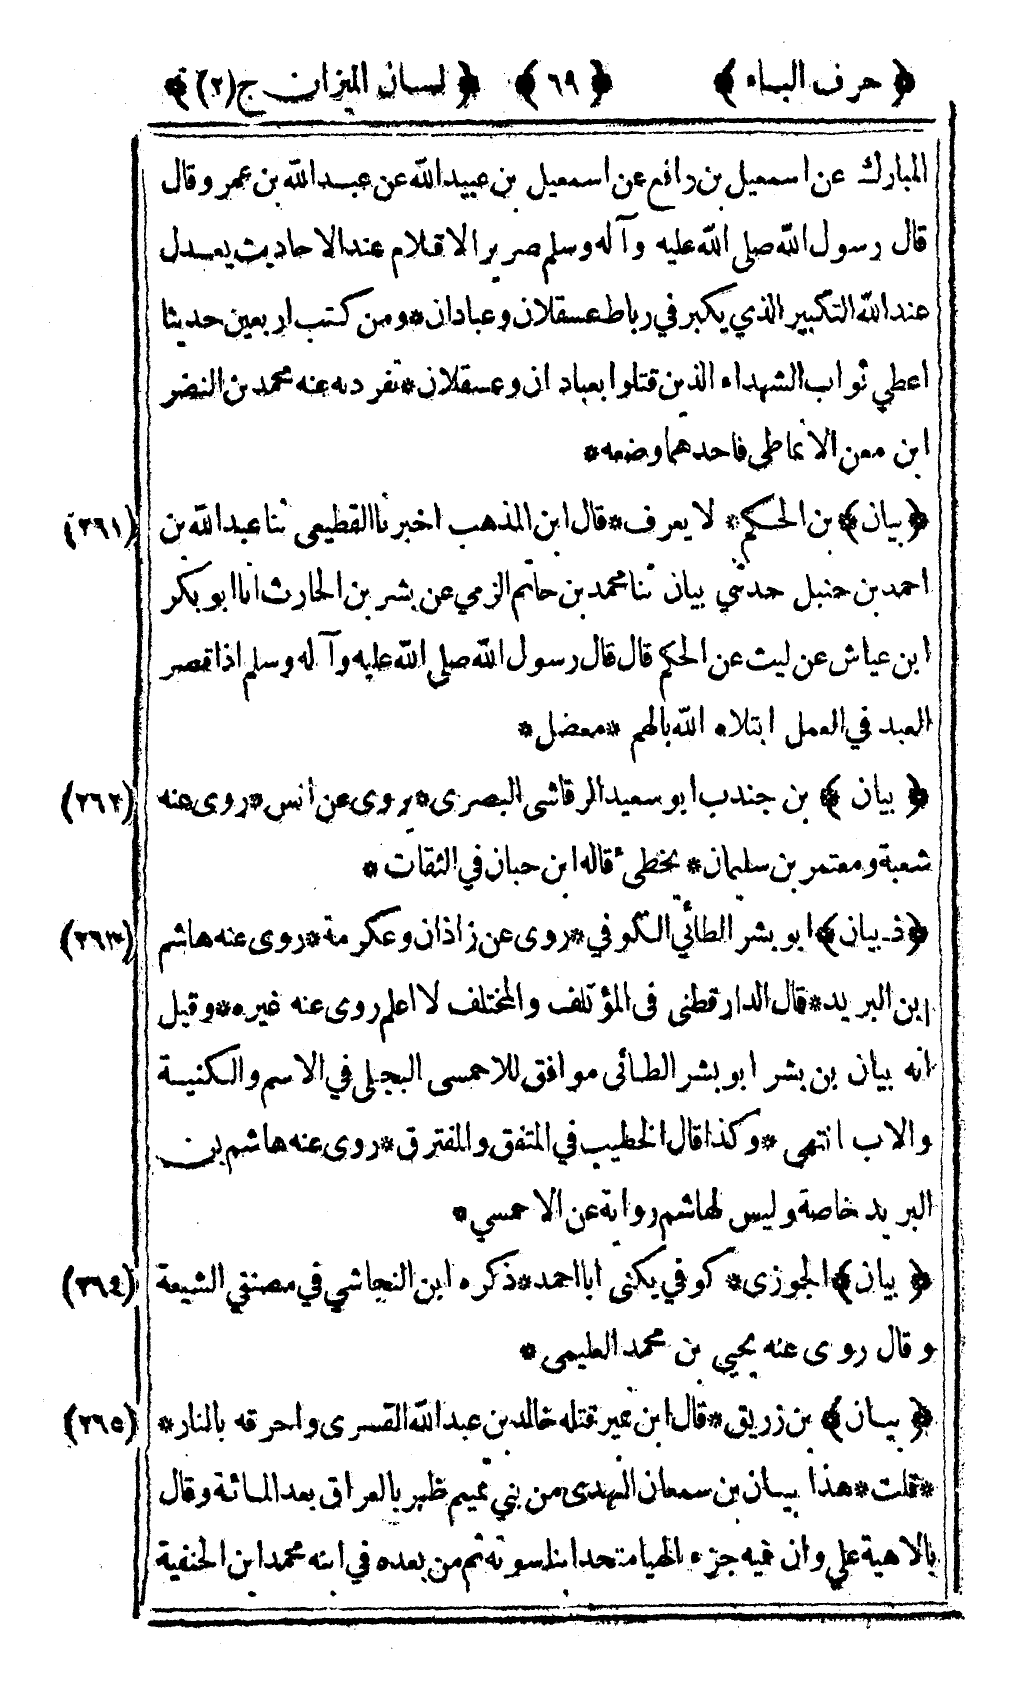 ﴿ حرف الباء ﴾ ﴿ ٦٩ ﴾ ﴿ لسان الميزان ج (٢) ﴾
المبارك عن اسمعيل بن رافع عن اسمعيل بن عبيد الله عن عبد الله بن عمر وقال
قال رسول الله صلى الله عليه وآله وسلم صرير الاقلام عند الاحاديث يعدل
عند الله التكبير الذي يكبر في رباط عسقلان وعبادان * ومن كتب اربعين حديثا
اعطي ثواب الشهداء الذين قتلوا بعبادان وعسقلان * تفرد به عنه محمد بن النضر
ابن معن الانماطي فاحدهما وضعه *
﴿ بيان ﴾ بن الحكم * لا يعرف * قال ابن المذهب اخبرنا القطيعى ثنا عبد الله بن (٢٦١)
احمد بن حنبل حدثني بيان ثنا محمد بن حاتم الزمي عن بشر بن الحارث انا ابو بكر
ابن عياش عن ليث عن الحكم قال قال رسول الله صلى الله عليه وآله وسلم اذا قصر
العبد في العمل ابتلاه الله بالهم * معضل *
﴿ بيان ﴾ بن جندب ابو سعيد الرقاشى البصرى * يروى عن انس * روى عنه (٢٦٢)
شعبة ومعتمر بن سليمان * يخطىء قاله ابن حبان في الثقات *
﴿ ذ ـ بيان ﴾ ابو بشر الطائي الكوفي * روى عن زاذان وعكرمة * روى عنه هاشم (٢٦٣)
ابن البريد * قال الدارقطنى فى المؤتلف والمختلف لا اعلم روى عنه غيره * وقيل
انه بيان بن بشر ابو بشر الطائى موافق للاحمسى البجلي في الاسم والكنية
والاب انتهى * وكذا قال الخطيب في المتفق والمفترق * روى عنه هاشم بن
البريد خاصة وليس لهاشم رواية عن الاحمسي *
﴿ بيان ﴾ الجوزى * كوفي يكنى ابا احمد * ذكره ابن النجاشي في مصنفي الشيعة (٢٦٤)
وقال روى عنه يحيي بن محمد العليمى *
﴿ بيان ﴾ بن زريق * قال ابن نمير قتله خالد بن عبد الله القسرى واحرقه بالنار * (٢٦٥)
* قلت * هذا بيان بن سمعان النهدى من بني تميم ظهر بالعراق بعد المائة وقال
بالاهية علي وان فيه جزء الهيا متحدا بناسوته ثم من بعده في ابنه محمد ابن الحنفية